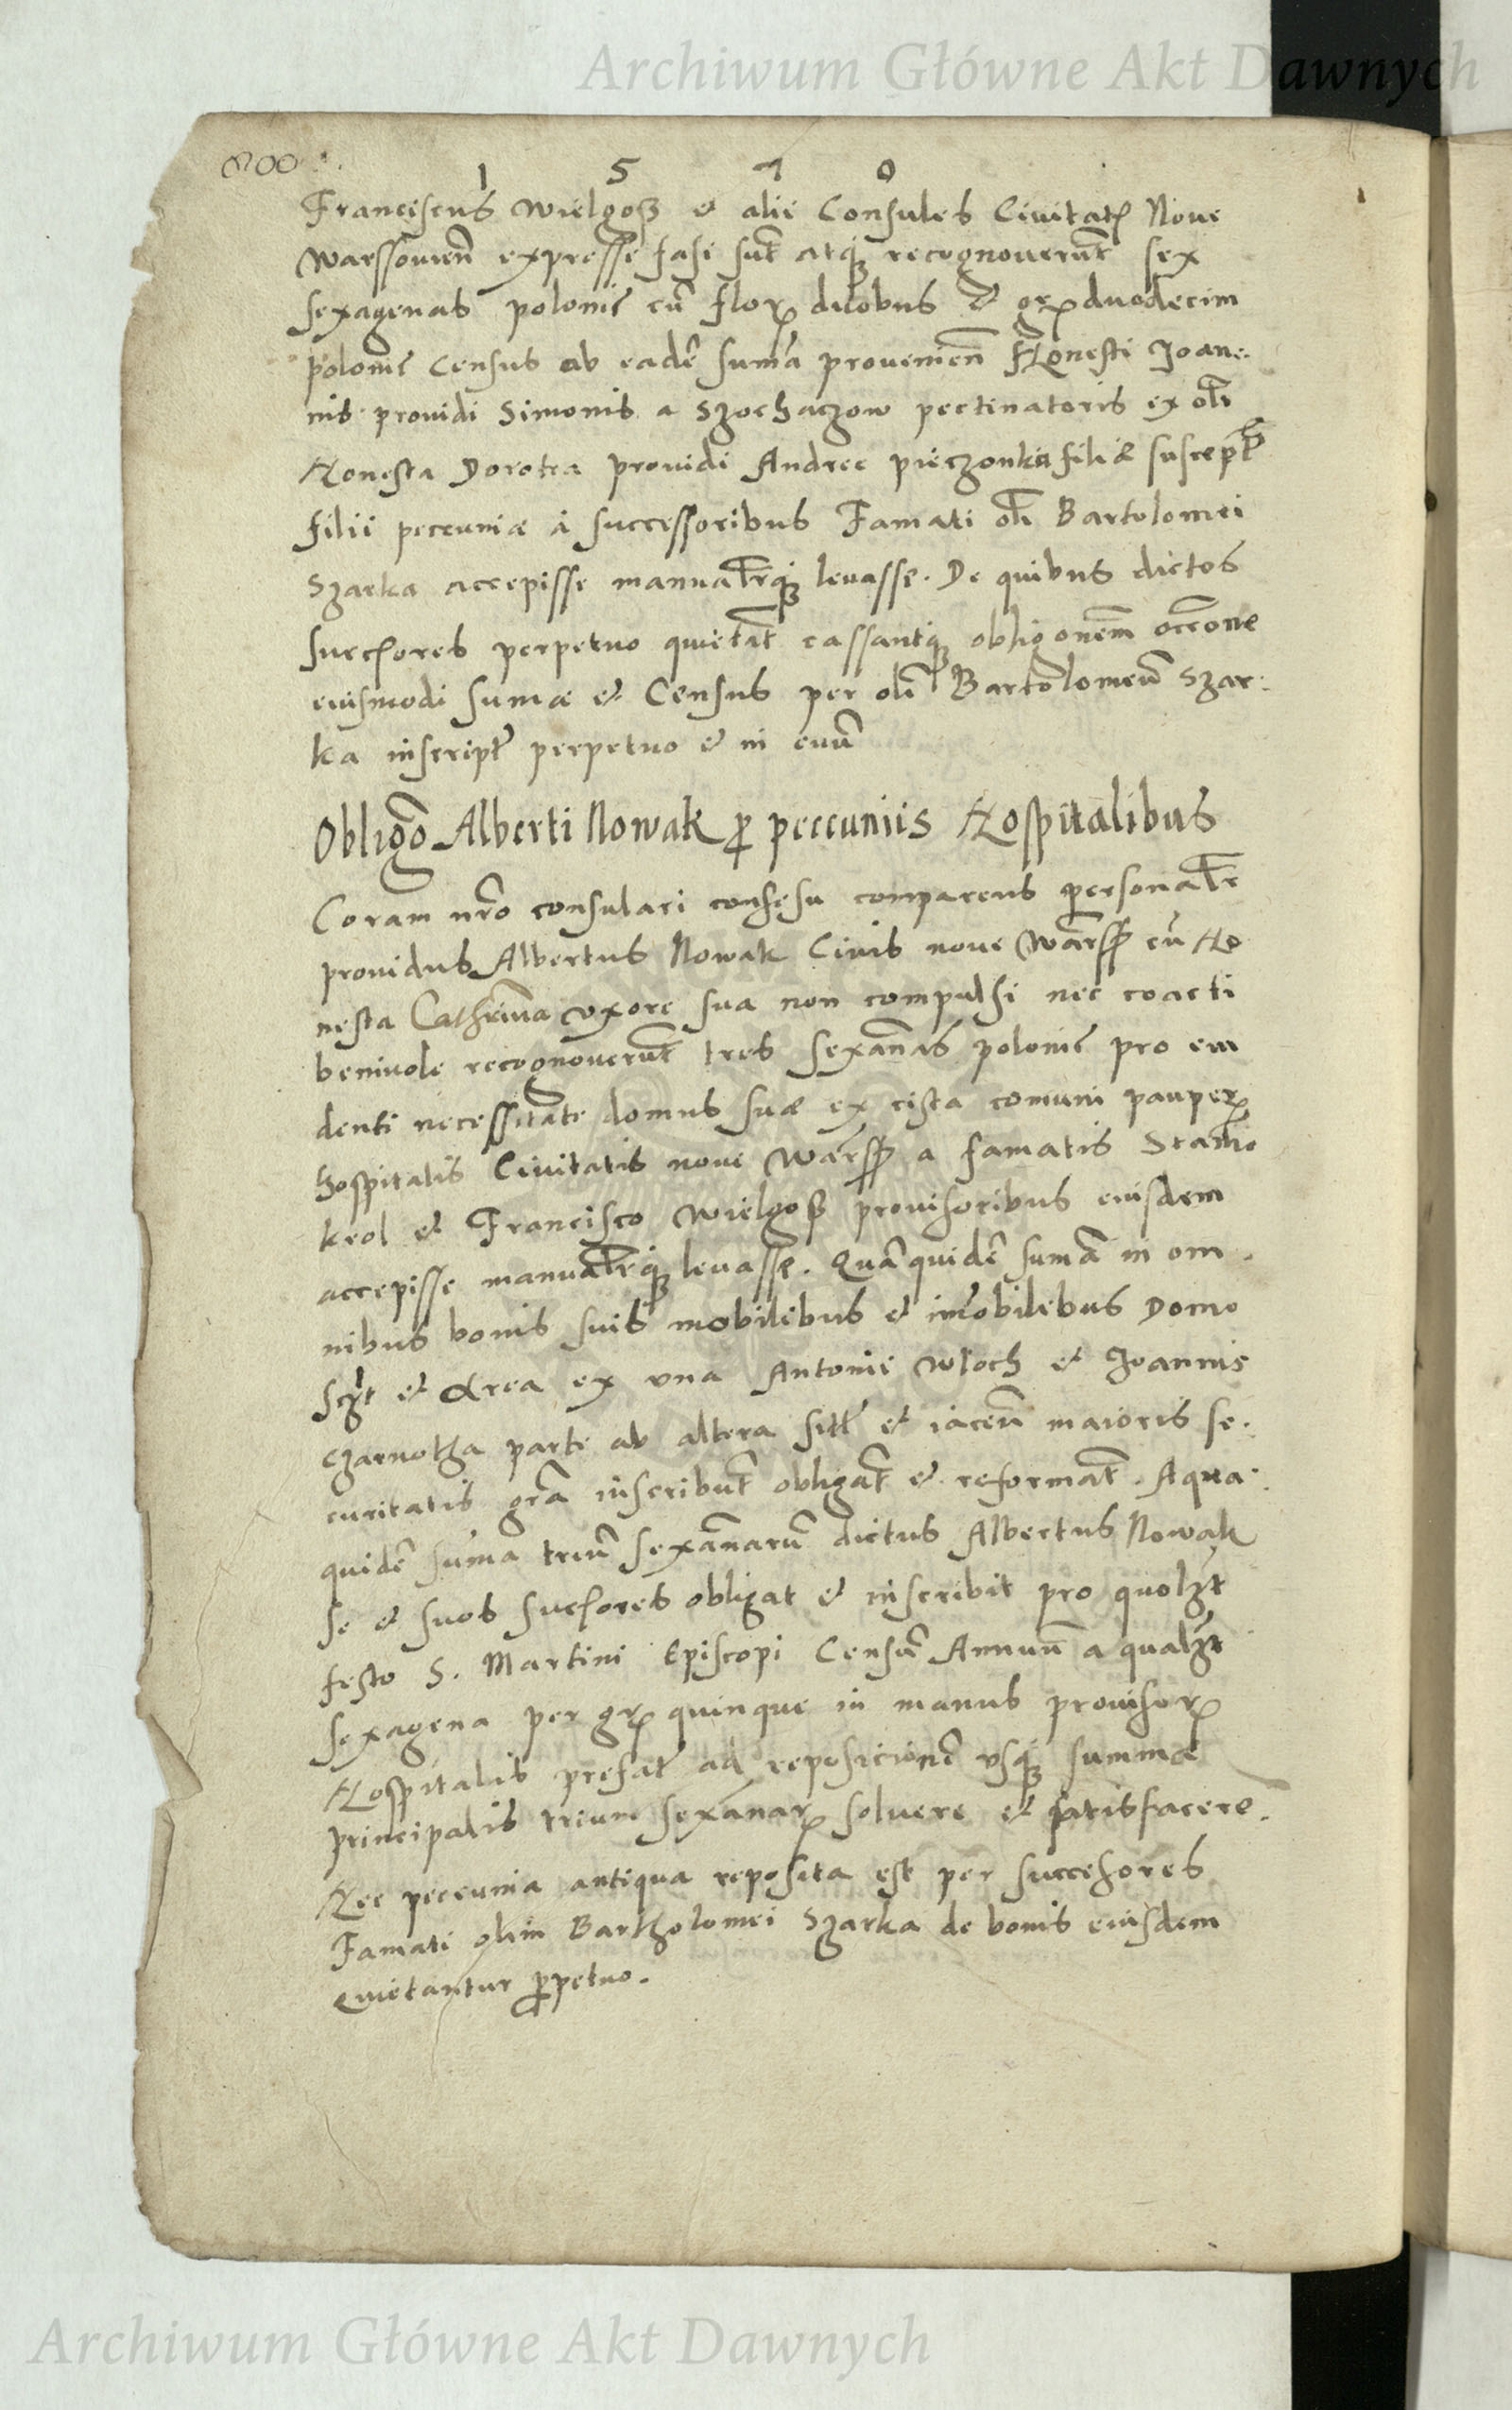 Archiwum Główne Akt Dawnych
800
1 5 7 0
Franciscus Wielgoß et alii Consules Civitatꝭ Nove
Warssovień expresse fasi sūt atqꝫ recognoverūt sex
sexagenas polonic̄ cū floꝝ duobus et gꝝ duodecim
polonic̄ Census ab eadē suma provenień Honesti Joan-
nis providi Simonis a Szochaczow pectinatoris ex olī
Honesta Dorotea providi Andree pieczonka filiæ suscept̄
filii peccuniæ a successoribus Famati olī Bartolomei
Szarka accepisse manualr̄qꝫ levasse. De quibus dictos
succ̄sores perpetuo quietāt cassantqꝫ obligonem̄ occ̄one
eiusmodi sumæ et Census per olī Bartolomeū Szar-
ka inscript̄ perpetuo et in evū
Obligō Alberti Nowak ꝓ peccuniis Hospitalibus
Coram nr̄o consulari consesu comparens personalr̄
providus Albertus Nowak Civis nove Warss̄ cū Ho
nesta Cathrina uxore sua non compulsi nec coacti
benivole recognoverūt tres sexān̄as polonic̄ pro evi
denti necessitate domus suæ ex cista comuni paupeꝝ
hospitalis Civitatis nove Warss̄ a famatis Stanio
krol et Francisco Wielgoß provisoribus eiusdem
accepisse manualr̄qꝫ levasse. Quā quidē sumā in om-
nibus bonis suis mobilibus et im̄obilibus Domo
sczt et Area ex una Antonii Wloch et Joannis
Czarnotha parte ab altera sitt̄ et iaceń maioris se-
curitatis gr̄a inscribūt obligāt et reformāt. A qua
quidē suma triū sexān̄arū dictus Albertus Nowak
se et suos succ̄sores obligat et inscribit pro quolꝫt
festo S. Martini Episcopi Censū Annuū a qualꝫt
sexagena per gꝝ quinque in manus provisoꝝ
Hospitalis prefat̄ ad reposicionē usqꝫ summæ
principalis trium sexān̄aꝝ solvere et satisfacere.
Hec peccunia antiqua reposita est per successores
Famati olim Bartholomei Szarka de bonis eiusdem
Quietantur ꝑpetuo.
Archiwum Główne Akt Dawnych